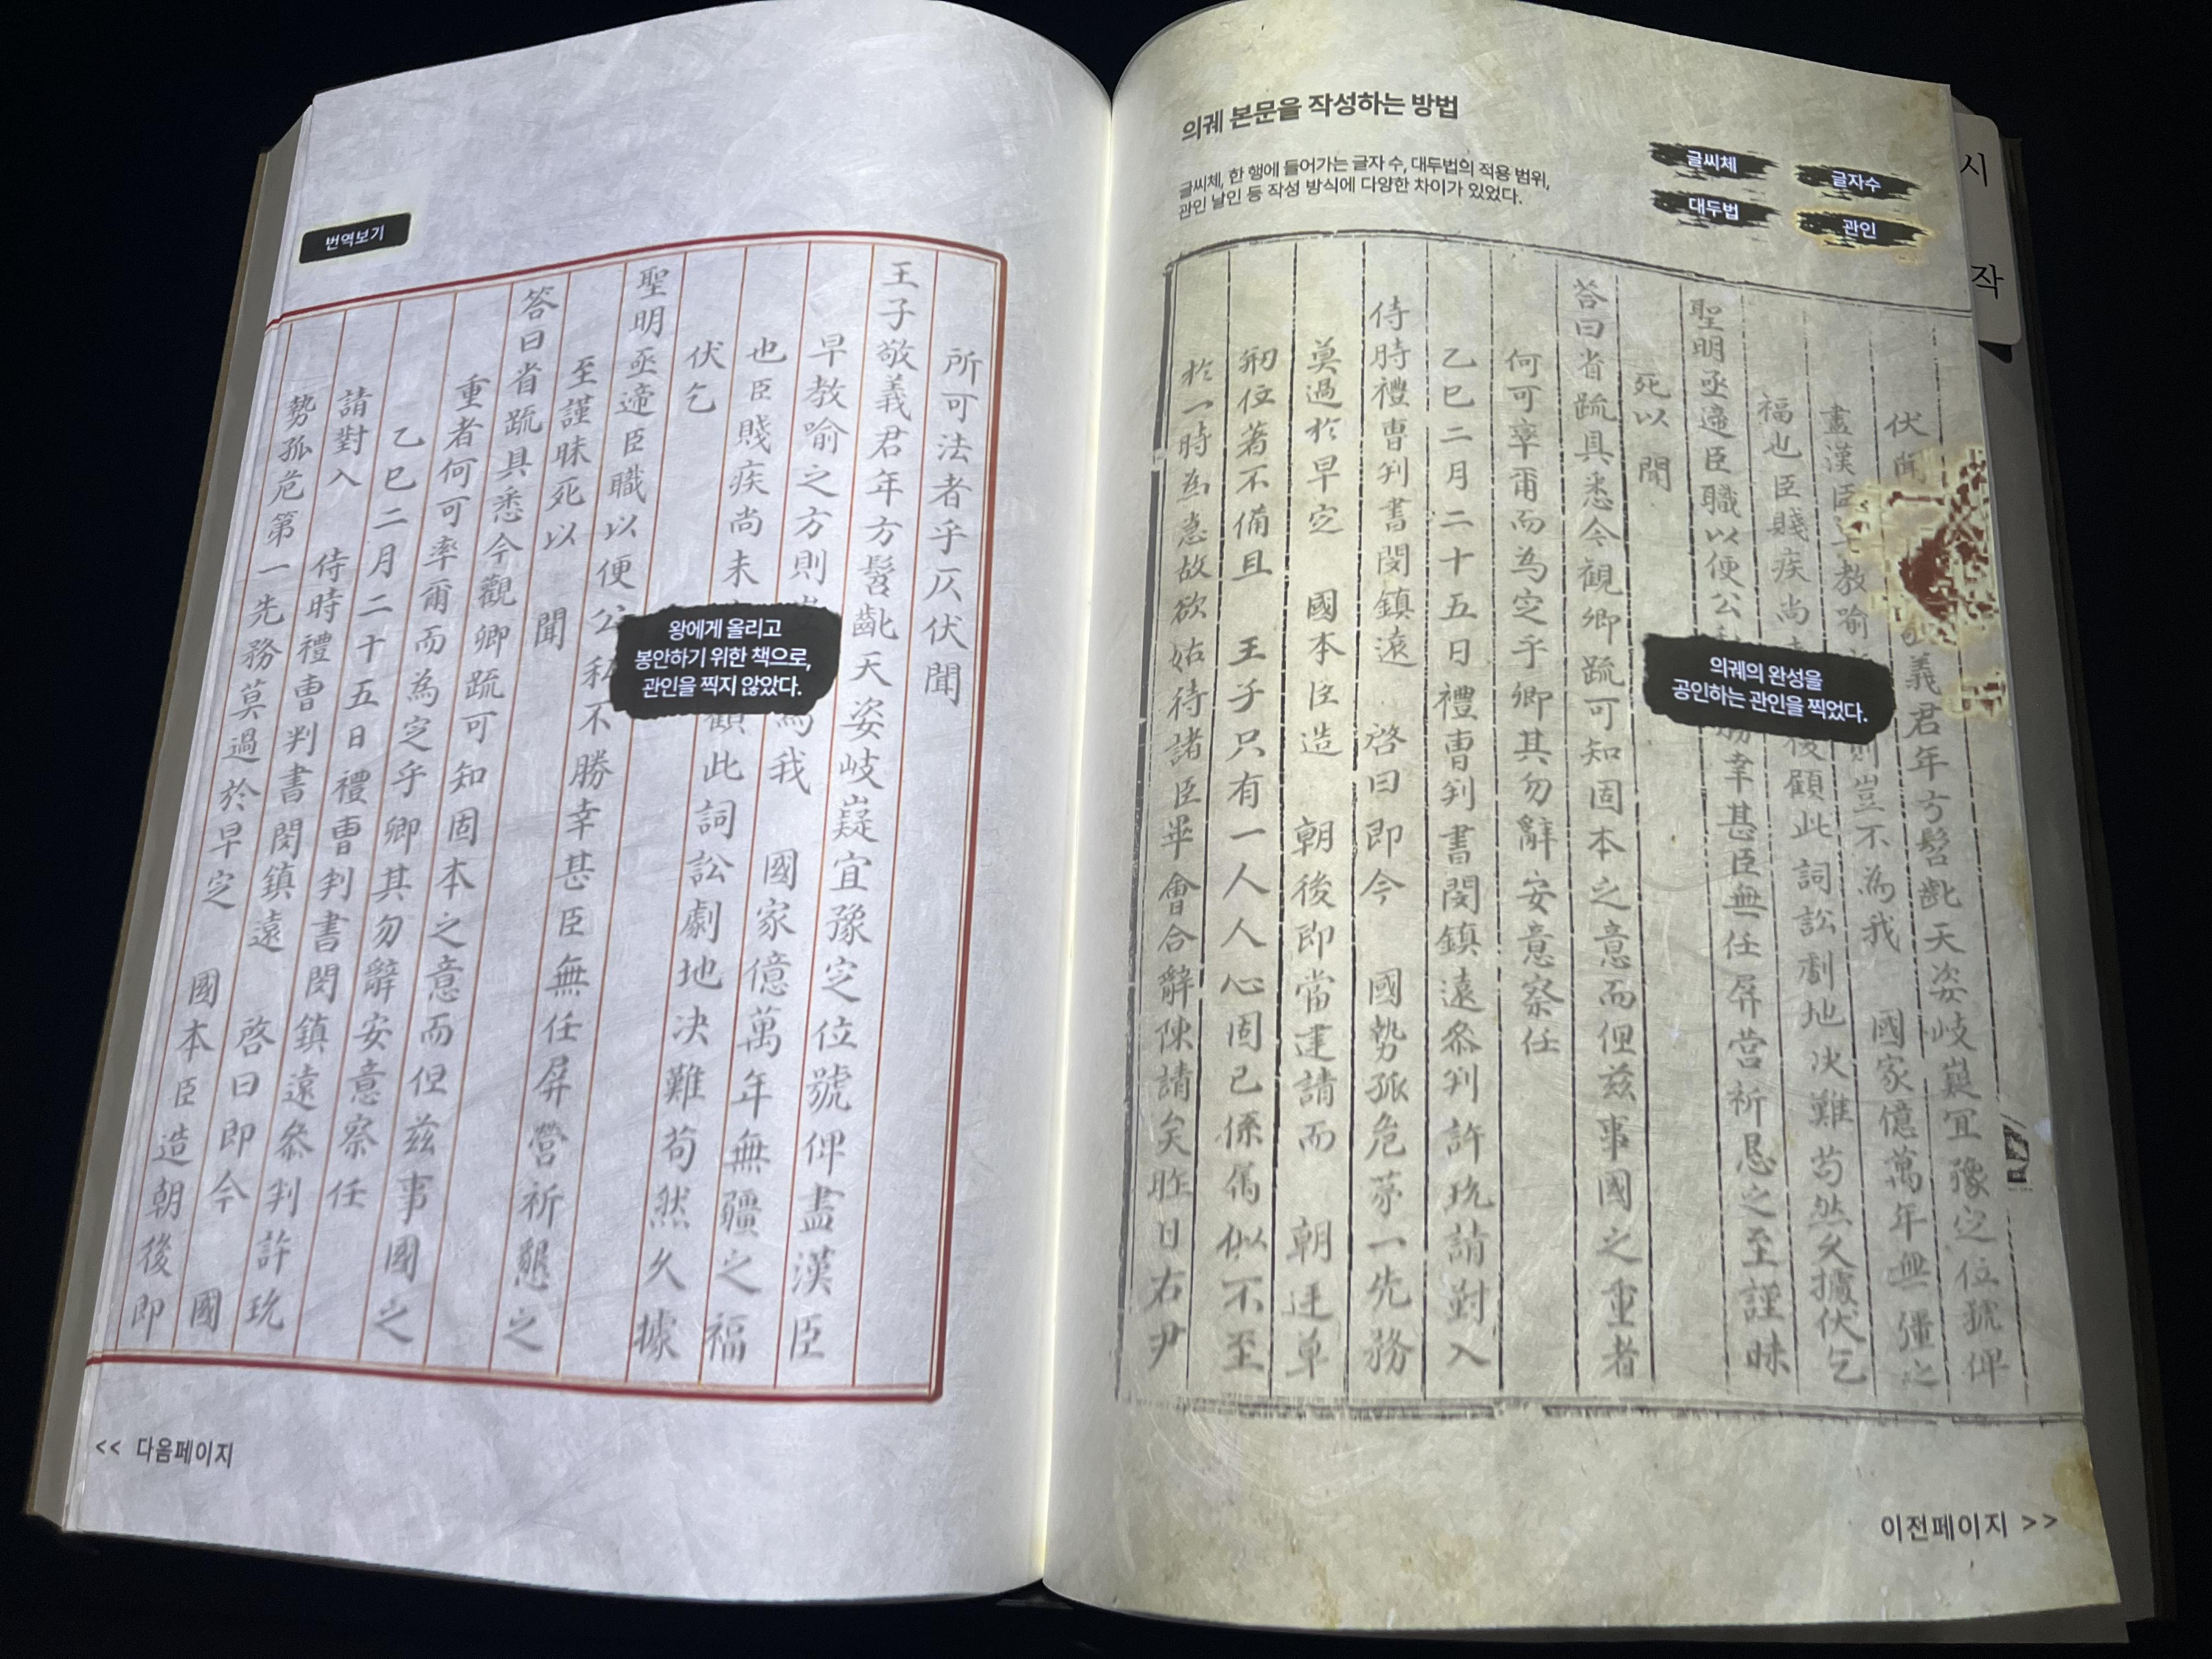 의궤 본문을 작성하는 방법
글씨체, 한 행에 들어가는 글자 수, 대두법의 적용 범위,
관인 날인 등 작성 방식에 다양한 차이가 있었다.
글씨체
글자수
대두법
관인
시
작
伏聞 義君年方髫齔天姿岐嶷宜豫定位號俾
盡漢臣 教喻 則豈不為我 國家億萬年無疆之
福也臣賤疾尚 後顧此詞訟劇地決難苟然久據伏乞
聖明亟遞臣職以便公 勝幸甚臣無任屏營祈恳之至謹昧
死以 聞
答曰省疏具悉今觀卿疏可知固本之意而但茲事國之重者
何可率爾而為定乎卿其勿辭安意察任
乙巳二月二十五日禮曺判書閔鎮遠叅判許玧請對入
侍時禮曺判書閔鎮遠 啓曰即今 國勢孤危第一先務
莫過扵早定 國本臣造 朝後即當建請而 朝廷草
刱位著不備且 王子只有一人人心固已係属似不至
扵一時為急故欲姑待諸臣畢會合辭陳請矣昨日右尹
의궤의 완성을
공인하는 관인을 찍었다.
이전페이지 >>
번역보기
所可法者乎仄伏聞
王子敬義君年方髫齔天姿岐嶷宜豫定位號俾盡漢臣
早教喻之方則 為我 國家億萬年無疆之福
也臣賤疾尚未 顧此詞訟劇地決難苟然久據
伏乞
聖明亟遞臣職以便公私不勝幸甚臣無任屏營祈懇之
至謹昧死以 聞
答曰省疏具悉今觀卿疏可知固本之意而但茲事國之
重者何可率爾而為定乎卿其勿辭安意察任
乙巳二月二十五日禮曺判書閔鎮遠叅判許玧
請對入 侍時禮曺判書閔鎮遠 啓曰即今 國
勢孤危第一先務莫過於早定 國本臣造朝後即
왕에게 올리고
봉안하기 위한 책으로,
관인을 찍지 않았다.
<< 다음페이지